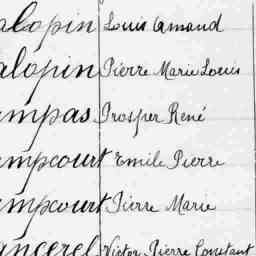 alopin Louis Amand
alopin Pierre Marie Louis
mpas Prosper René
mpcourt Emile Pierre
mpcourt Pierre Marie
ancerel Victor Pierre Constant